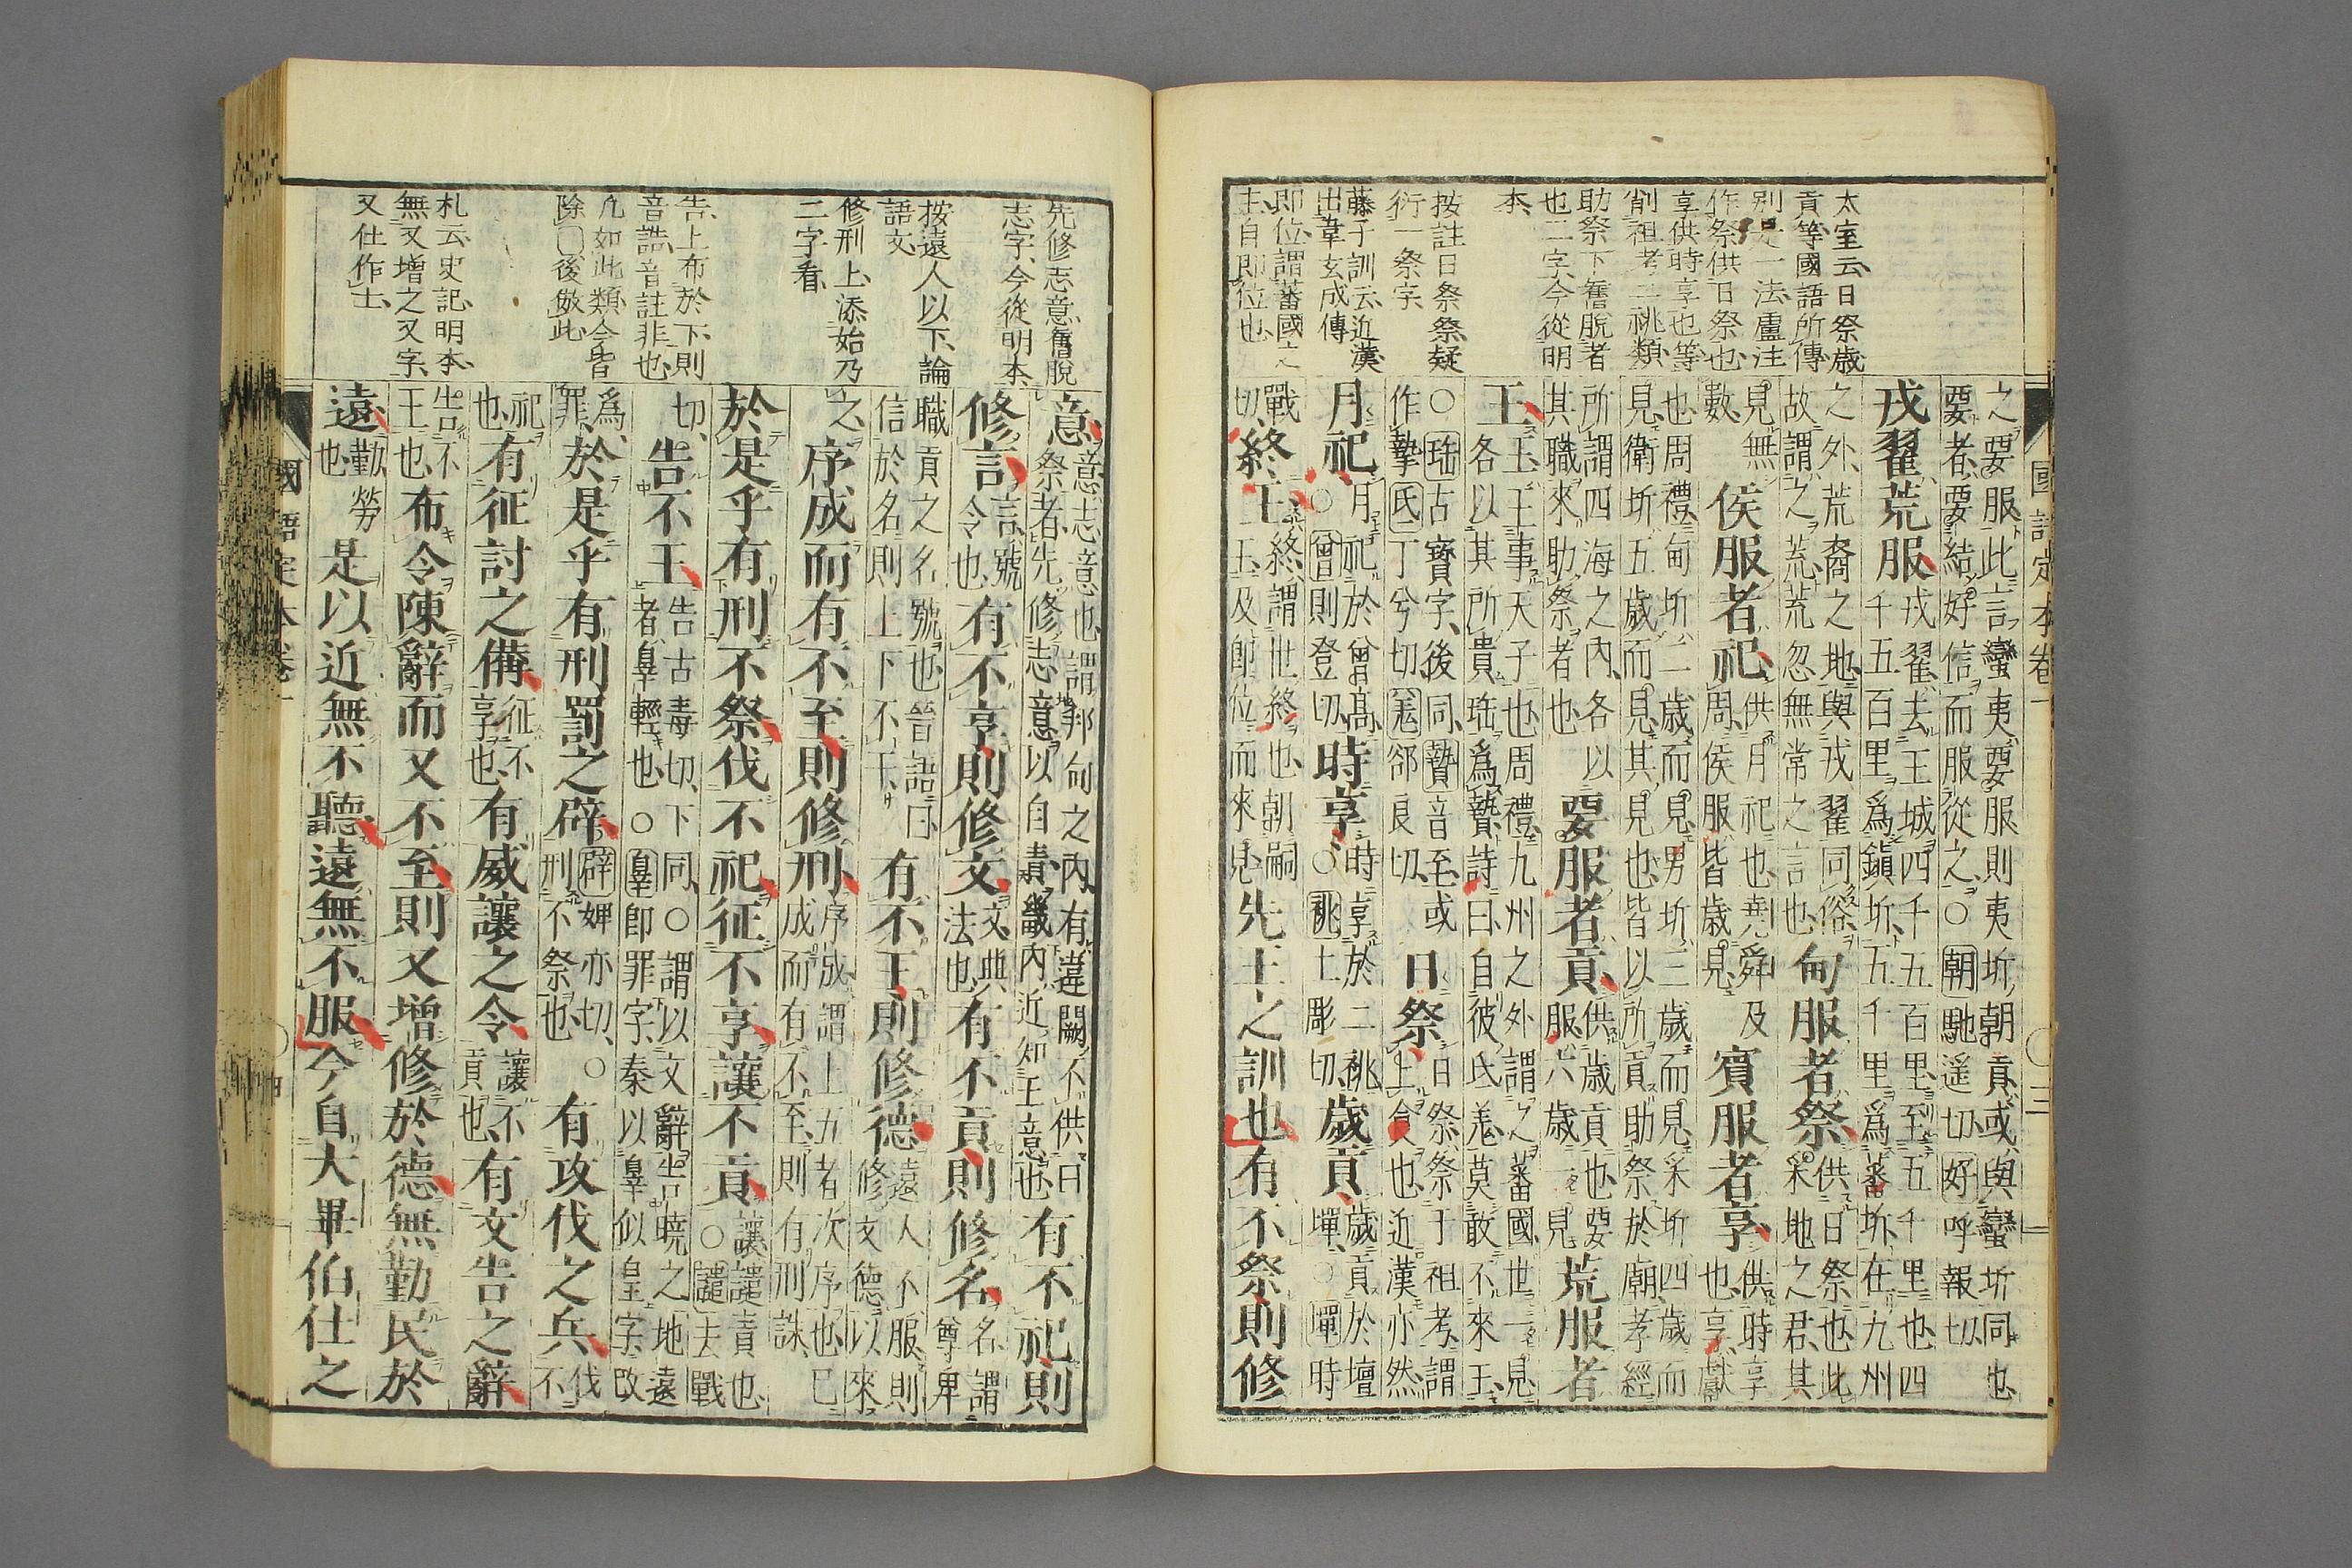 國語定本卷一
〇三
太室云日祭歲
貢等國語所傳
別是一法盧注
作祭供日祭也
享供時享也等
削祖考二祧類
助祭下舊脫者
也二字今從明
本
按註日祭祭疑
衍一祭字
藤子訓云近漢
出韋玄成傳
即位謂蕃國之
主自即位也
之要服此言蠻夷要服則夷圻朝貢或與蠻圻同也
要者要結好信而服從之〇朝馳遥切好呼報切
戎翟荒服戎翟去王城四千五百里至五千里也四千五百里爲鎭圻五千里爲蕃圻在九州
之外荒裔之地與戎翟同俗故謂之荒荒忽無常之言也甸服者祭供日祭也此采地之君其
見無數侯服者祀供月祀也堯舜及周侯服皆歲見賓服者享供時享也享獻
也周禮甸圻二歲而見男圻三歲而見采圻四歲而
見衛圻五歲而見其見也皆以所貢助祭於廟孝經
所謂四海之內各以其職來助祭者也要服者貢供歲貢也要服六歲一見荒服者
王王王事天子也周禮九州之外謂之蕃國世一見
各以其所貴珤爲贄詩曰自彼氐羌莫敢不來王
〇珤古寳字後同贄音至或作摯氐丁兮切羌郤良切日祭日祭祭于祖考謂上食也近漢亦然
月祀月祀於曾高〇曾則登切時享時享於二祧〇祧土彫切歲貢歲貢於壇墠〇墠時
戰切終王終謂世終也朝嗣王及即位而來見先王之訓也有不祭則修
先修志意舊脫
志字今從明本
按遠人以下論
語文
修刑上添始乃
二字看
告上布於下則
音誥音註非也
凡如此類今皆
除〇後倣此
札云史記明本
無又增之又字
又仕作士
意意志意也謂邦甸之內有違闕不供日祭者先修志意以自責畿內近知王意也有不祀則
修言言號令也有不享則修文文典法也有不貢則修名名謂尊卑
職貢之名號也晉語曰信於名則上下不干有不王則修德遠人不服則修文德以來
之序成而有不至則修刑序成謂上五者次序也已成而有不至則有刑誅
於是乎有刑不祭伐不祀征不享讓不貢讓譴責也〇譴去戰
切告不王告古毒切下同〇謂以文辭告曉之地遠者辠輕也〇辠即罪字秦以辠似皇字改
爲罪於是乎有刑罰之辟辟婢亦切〇刑不祭也有攻伐之兵伐不
祀也有征討之備征不享也有威讓之令讓不貢也有文告之辭
告不王也布令陳辭而又不至則又增修於德無勤民於
遠勤勞也是以近無不聽遠無不服今自大畢伯仕之